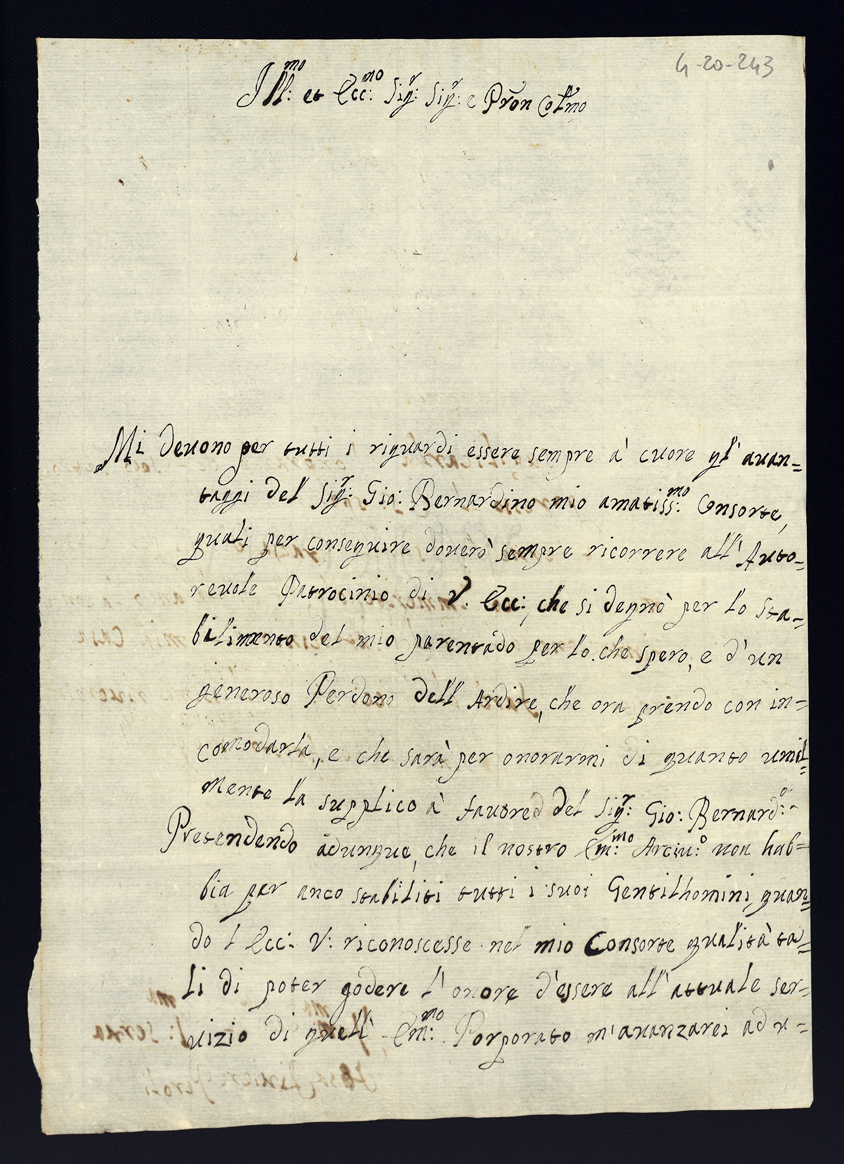 4-20-243
Ill:mo et Ecc:mo Sig:r Sig:r e Pron Colmo
Mi deuono per tutti i riguardi essere sempre à cuore gl'auan=
taggi del Sig:r Gio: Bernardino mio amatiss:mo Consorte,
quali per conseguire douerò sempre ricorrere all'Auto=
reuole Patrocinio di V. Ecc: che si degnò per lo sta=
bilimento del mio parentado per lo che spero, e d'un
generoso Perdono dell'Ardire, che ora prendo con in=
comodarla, e che sarà per onorarmi di quanto umil=
mente la supplico à fauore del Sig:r Gio: Bernard:o
Pretendendo adunque, che il nostro Em:mo Arciu:o non hab=
bia per anco stabiliti tutti i suoi Gentilhomini, quan=
do l'Ecc: V: riconoscesse nel mio Consorte qualità ta=
li di poter godere l'onore d'essere all'attuale ser=
uizio di quell' Em:mo Porporato m'auanzarei ad u=